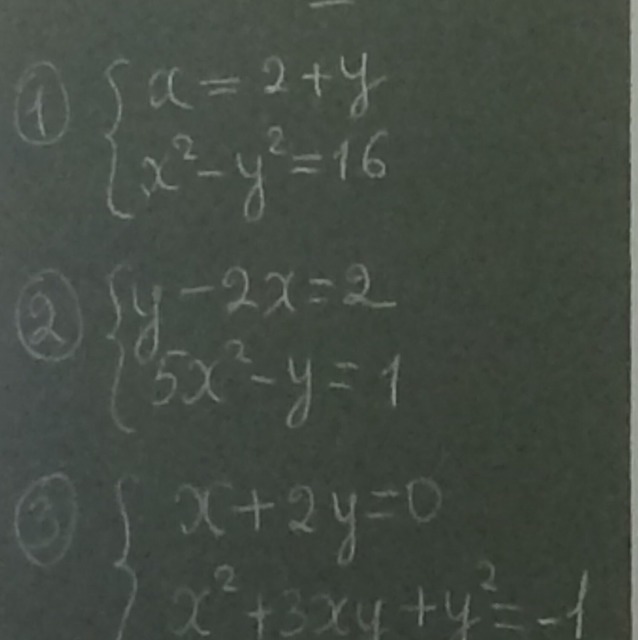 ① { x = 2 + y
x² - y² = 16
② { y - 2x = 2
5x² - y = 1
③ { x + 2y = 0
x² + 3xy + y² = -1